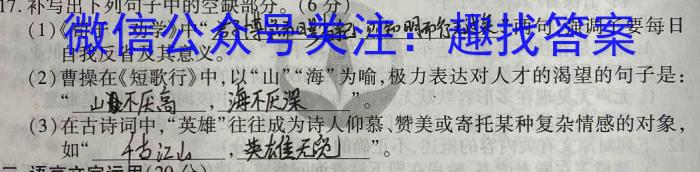 17.补写出下列句子中的空缺部分。(6分)
(1)《荀子·劝学》中“君子博学而日参省乎己,则知明而行无过矣”两句,强调君子要每日
微信公众号关注:趣找答案
自我反省及其意义。
(2)曹操在《短歌行》中,以“山”“海”为喻,极力表达对人才的渴望的句子是:
“山不厌高,海不厌深”。
(3)在古诗词中,“英雄”往往成为诗人仰慕、赞美或寄托某种复杂情感的对象,
如“千古江山,英雄无觅”。